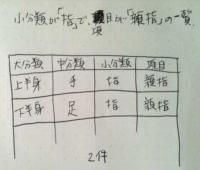 小分類が「指」で、項目が「親指」の一覧
大分類 中分類 小分類 項目
上半身 手 指 親指
下半身 足 指 親指
2件